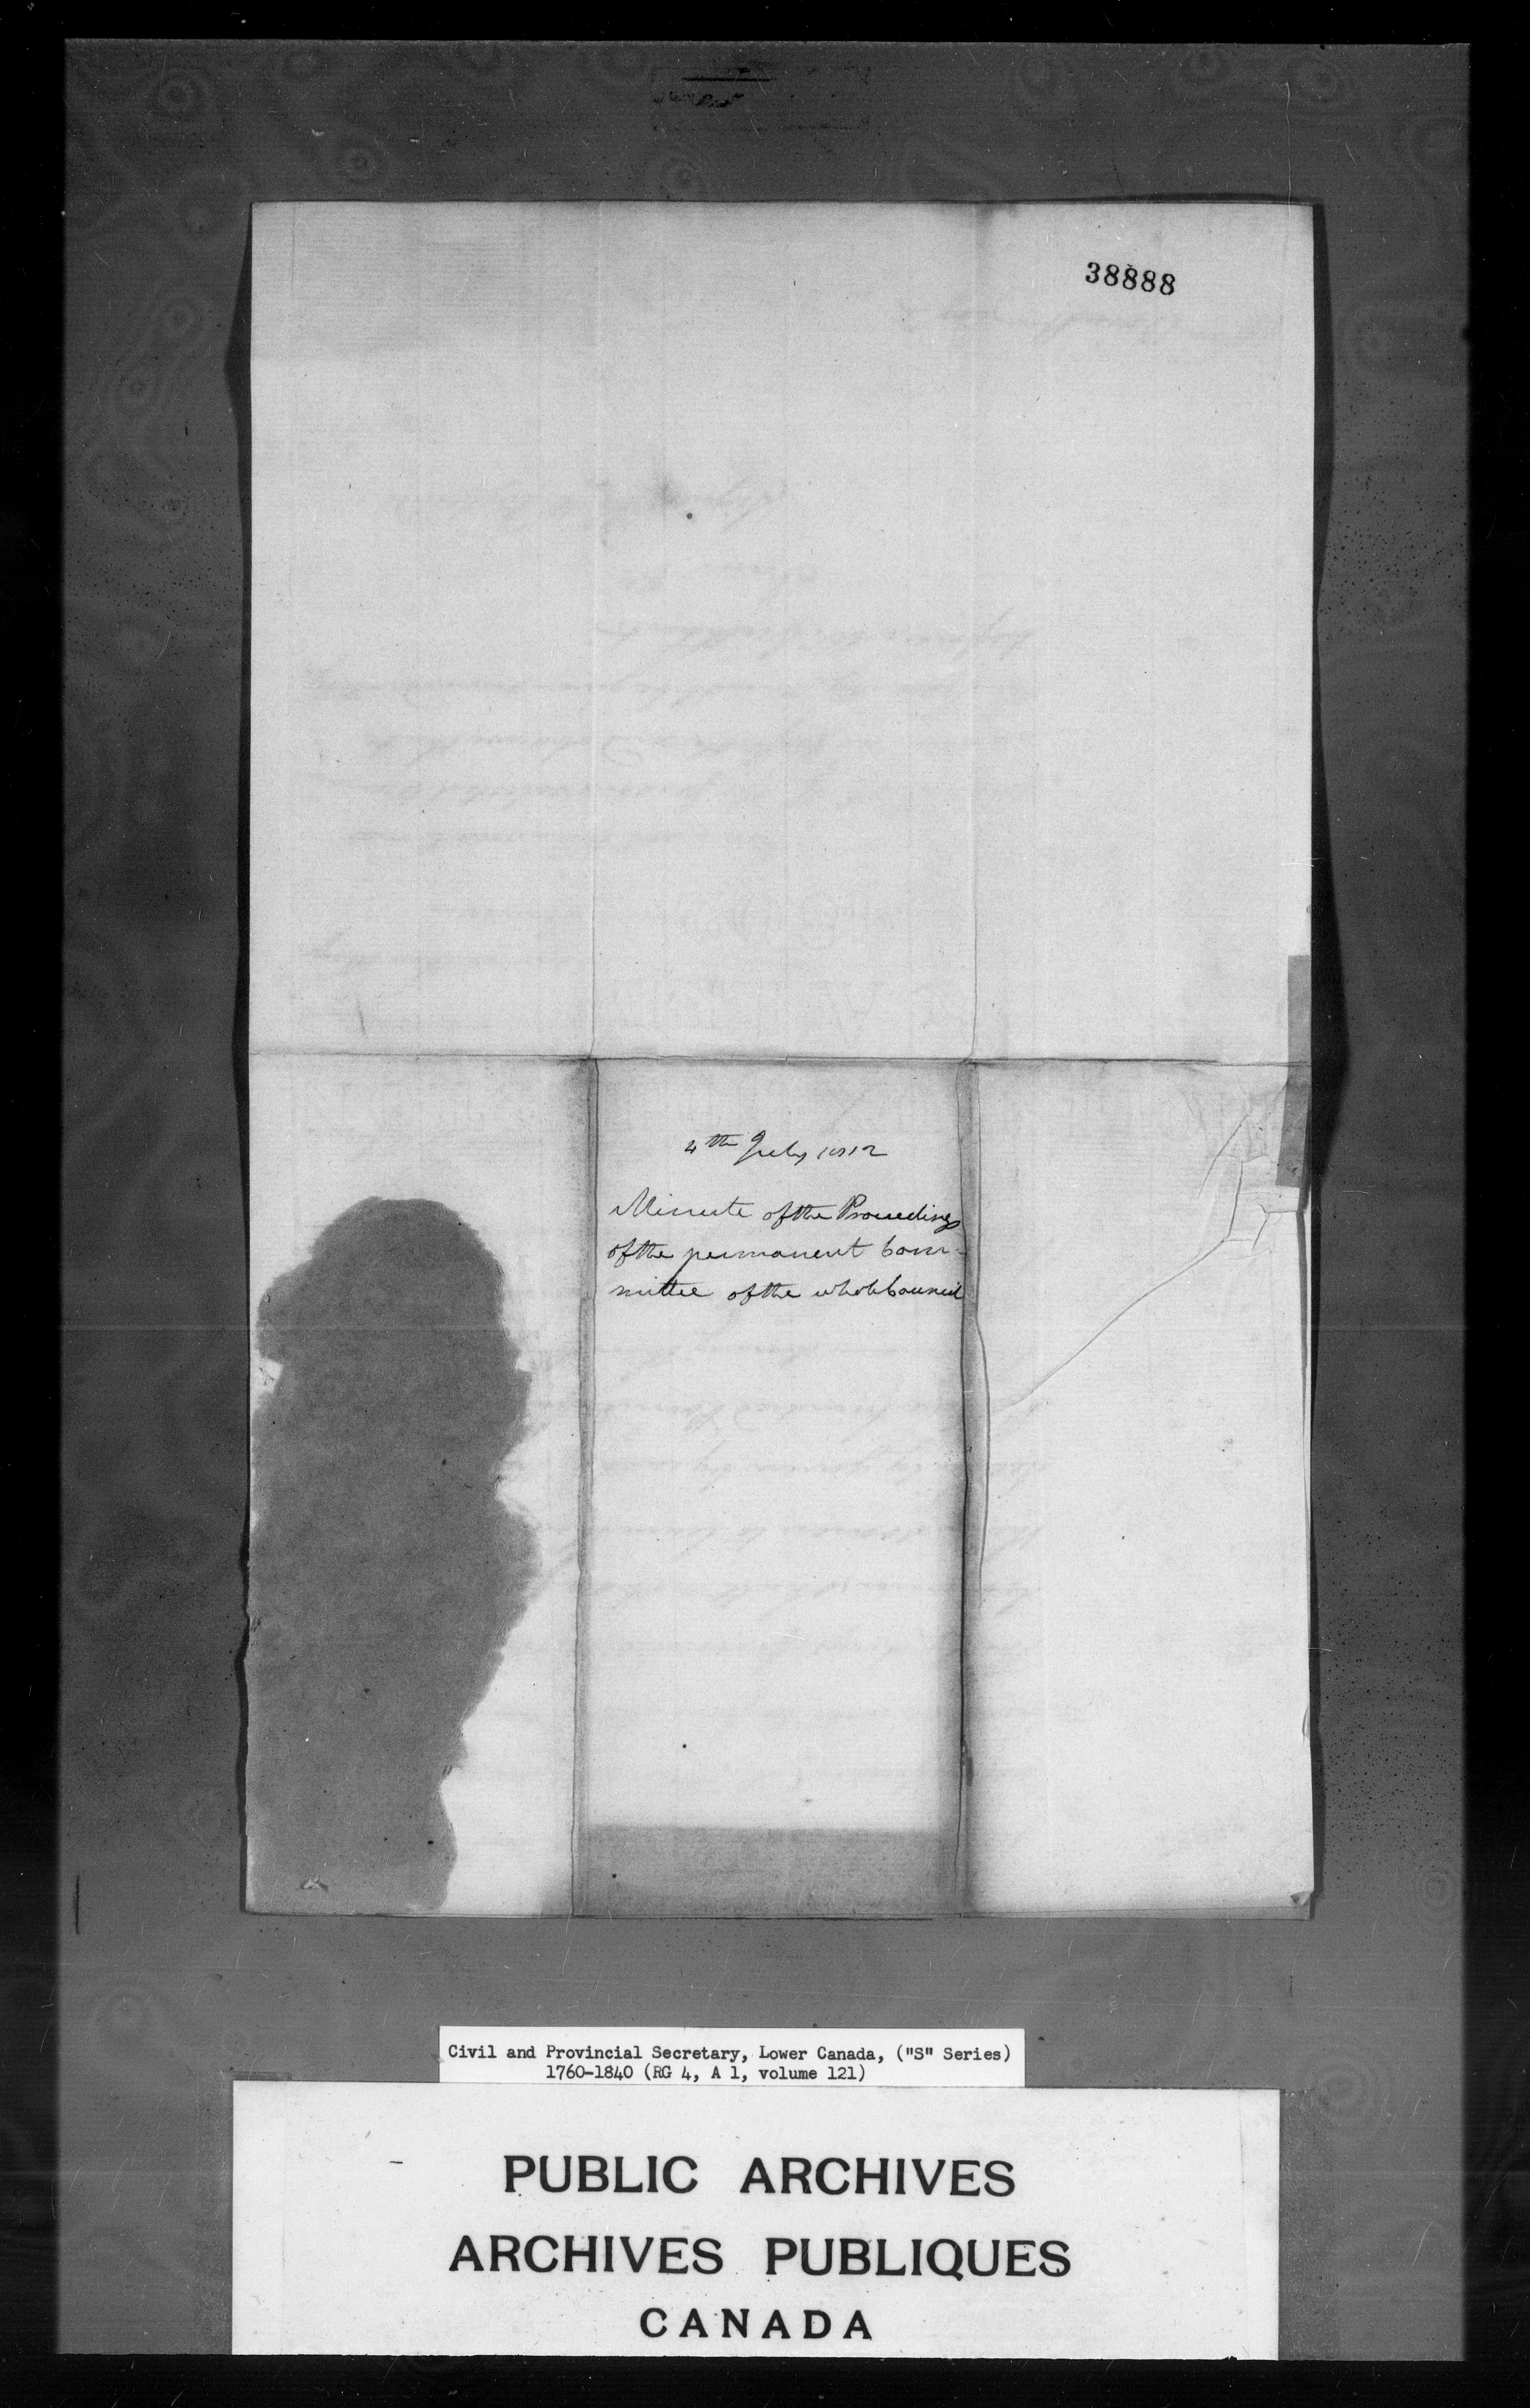 38888
4th July 1812
Minute of the Proceedings
of the permanent Com-
mittee of the whole Council
Civil and Provincial Secretary, Lower Canada, ("S" Series)
1760-1840 (RG 4, A 1, volume 121)
PUBLIC ARCHIVES
ARCHIVES PUBLIQUES
CANADA